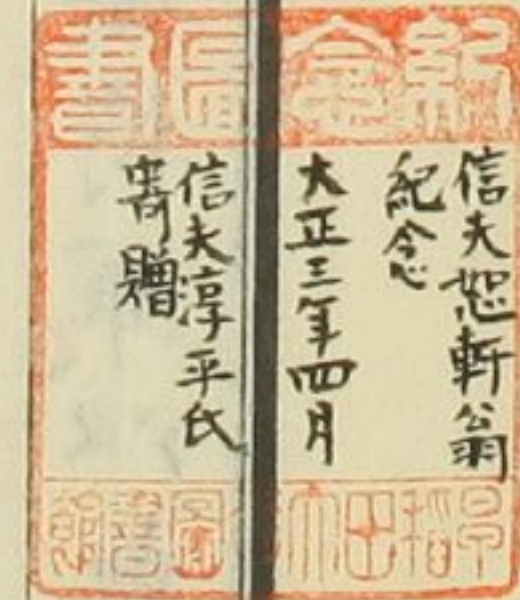 紀念圖書
信夫恕軒翁
紀念
大正三年四月
信夫淳平氏
寄贈
早稻田大
圖書